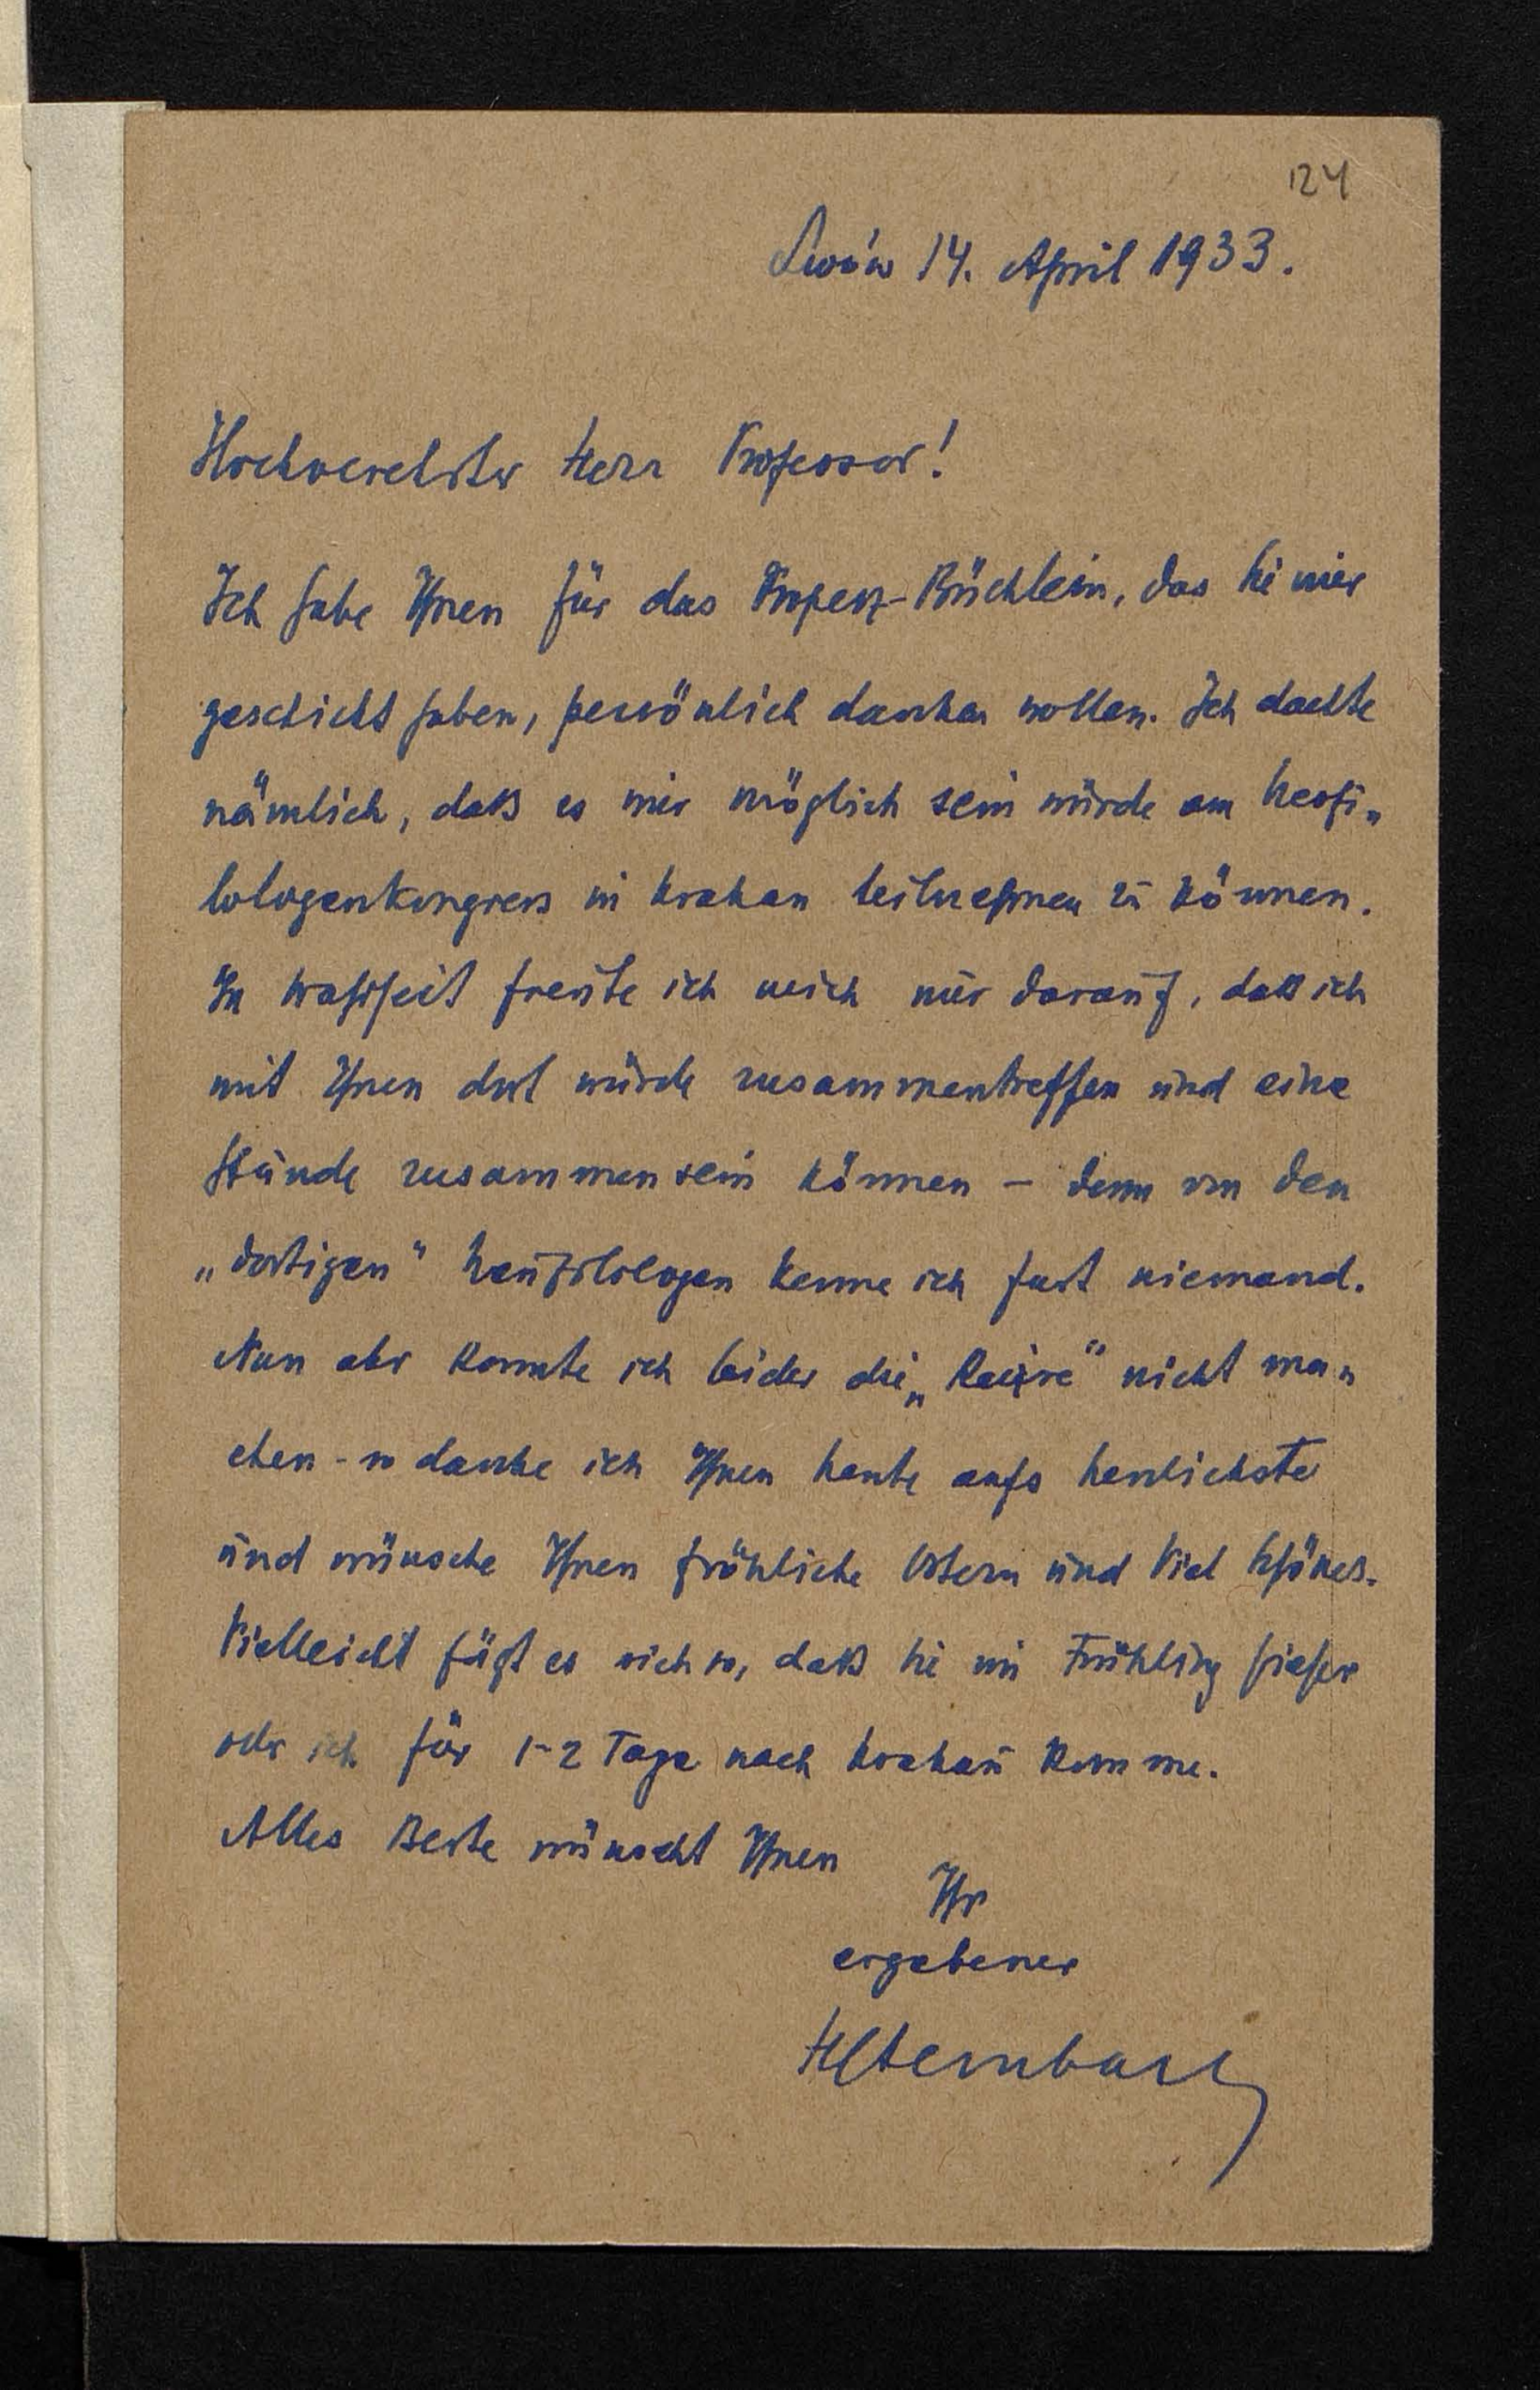 124
Lwów 14. April 1933.
Hochverehrter Herr Professor!
Ich habe Ihnen für das Properz-Büchlein, das Sie mir
geschickt haben, persönlich danken wollen. Ich dachte
nämlich, daß es mir möglich sein würde am Neofi„
lologenkongress in Krakau teilnehmen zu können.
In Wahrheit freute ich mich nur darauf, daß ich
mit Ihnen dort würde zusammentreffen und eine
Stunde zusammensein können – denn von den
„dortigen" Neufilologen kenne ich fast niemand.
Nun aber konnte ich leider die „Reise" nicht ma„
chen - so danke ich Ihnen heute aufs herzlichste
und wünsche Ihnen fröhliche Ostern und Viel Schönes.
Vielleicht fügt es sich so, daß Sie im Frühling hieher
oder ich für 1-2 Tage nach Krakau komme.
Alles Beste wünscht Ihnen
Ihr
ergebener
HSternbach